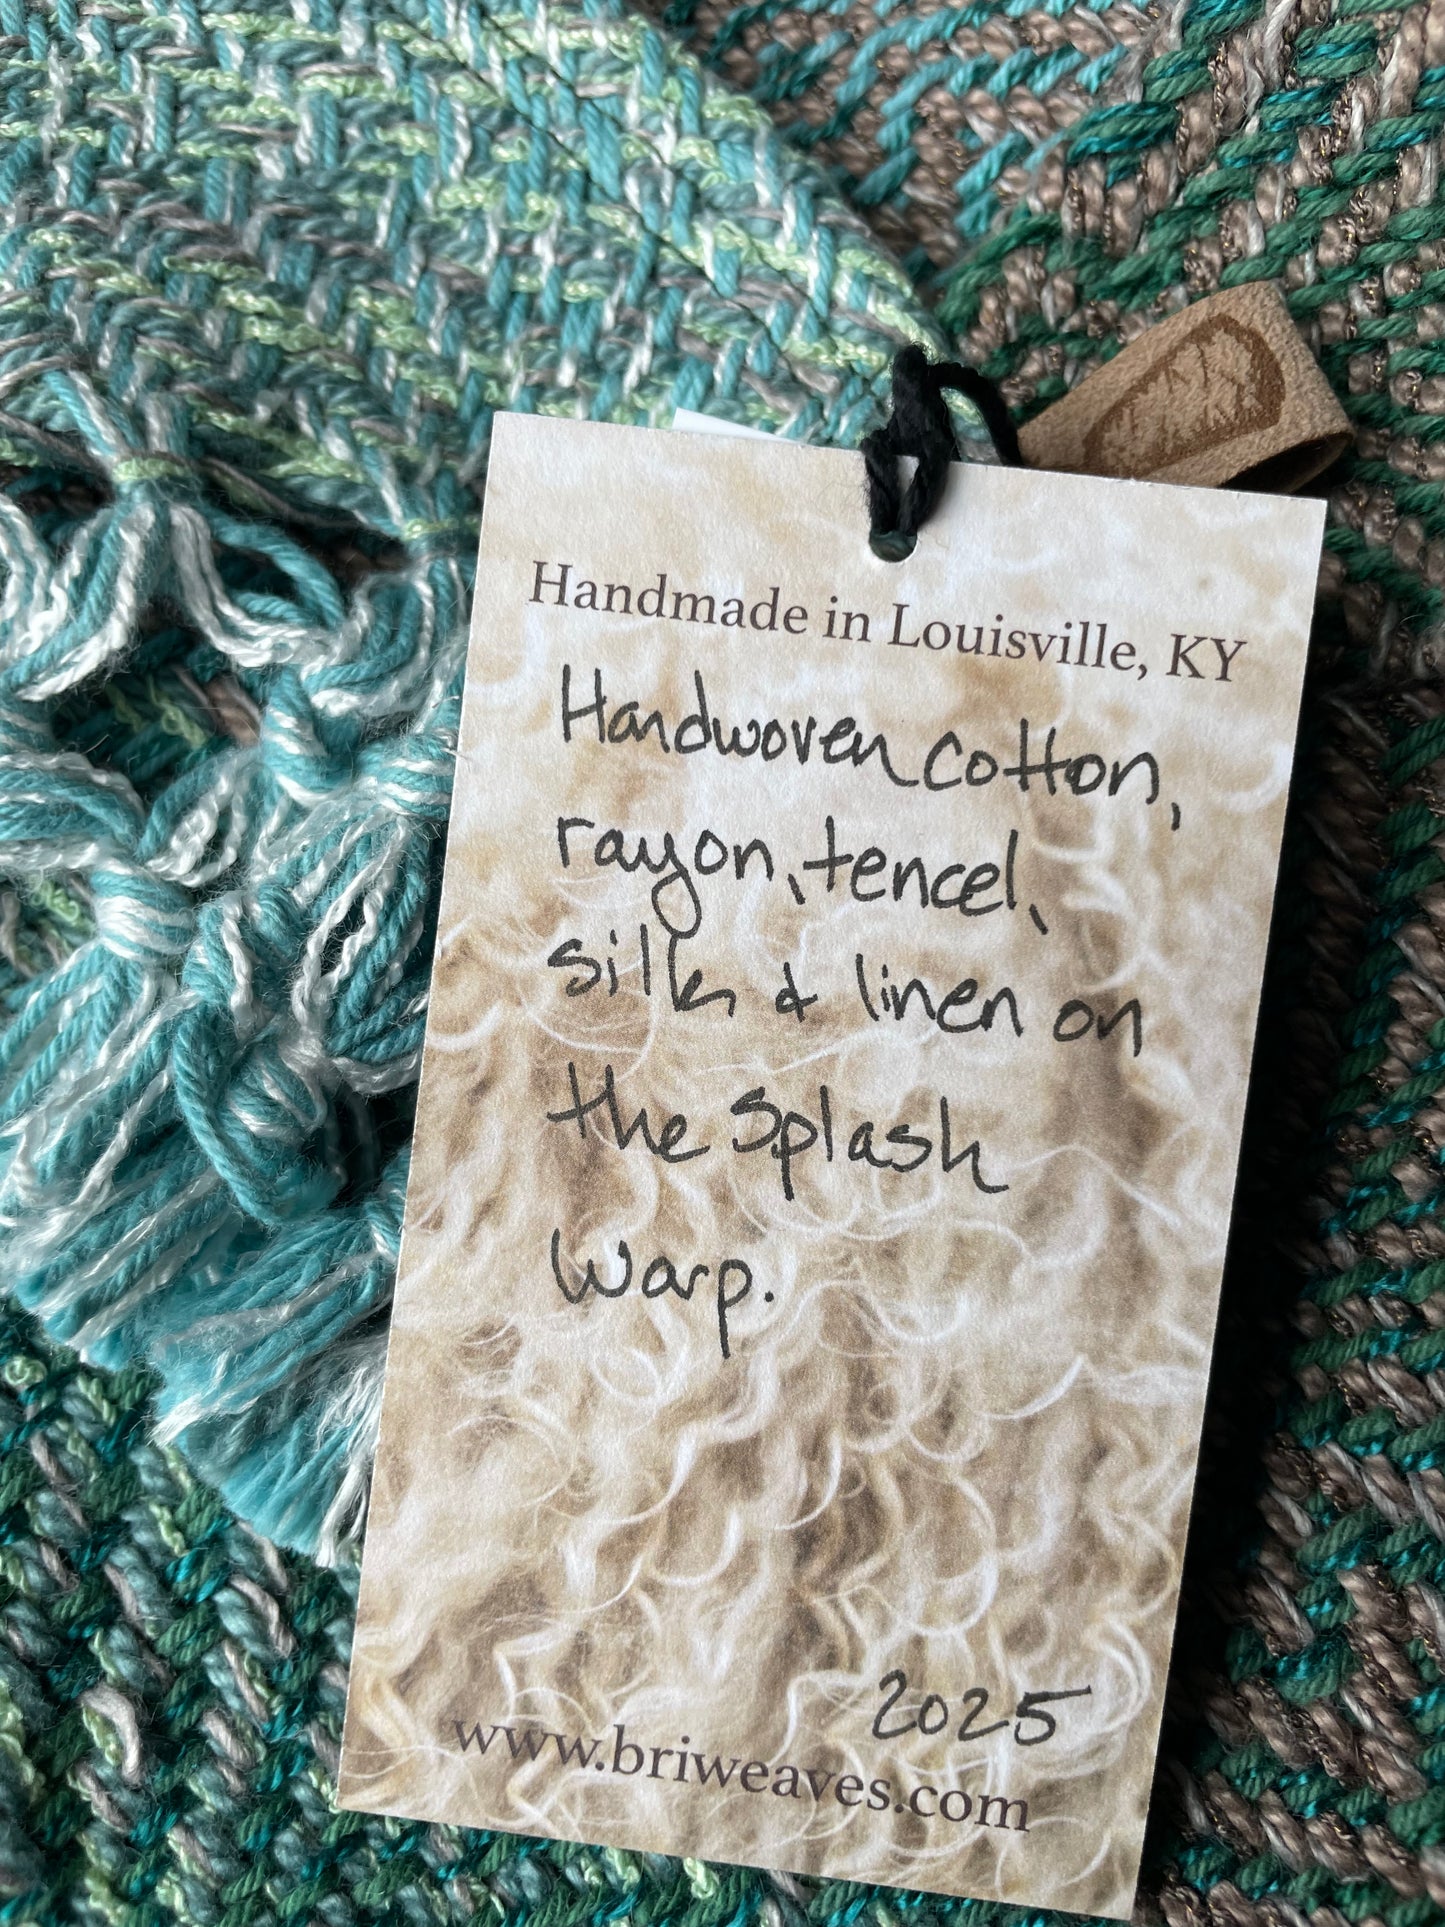 Handmade in Louisville, KY
Handwoven cotton,
rayon, tencel,
silk & linen on
the splash
warp.
2025
www.briweaves.com